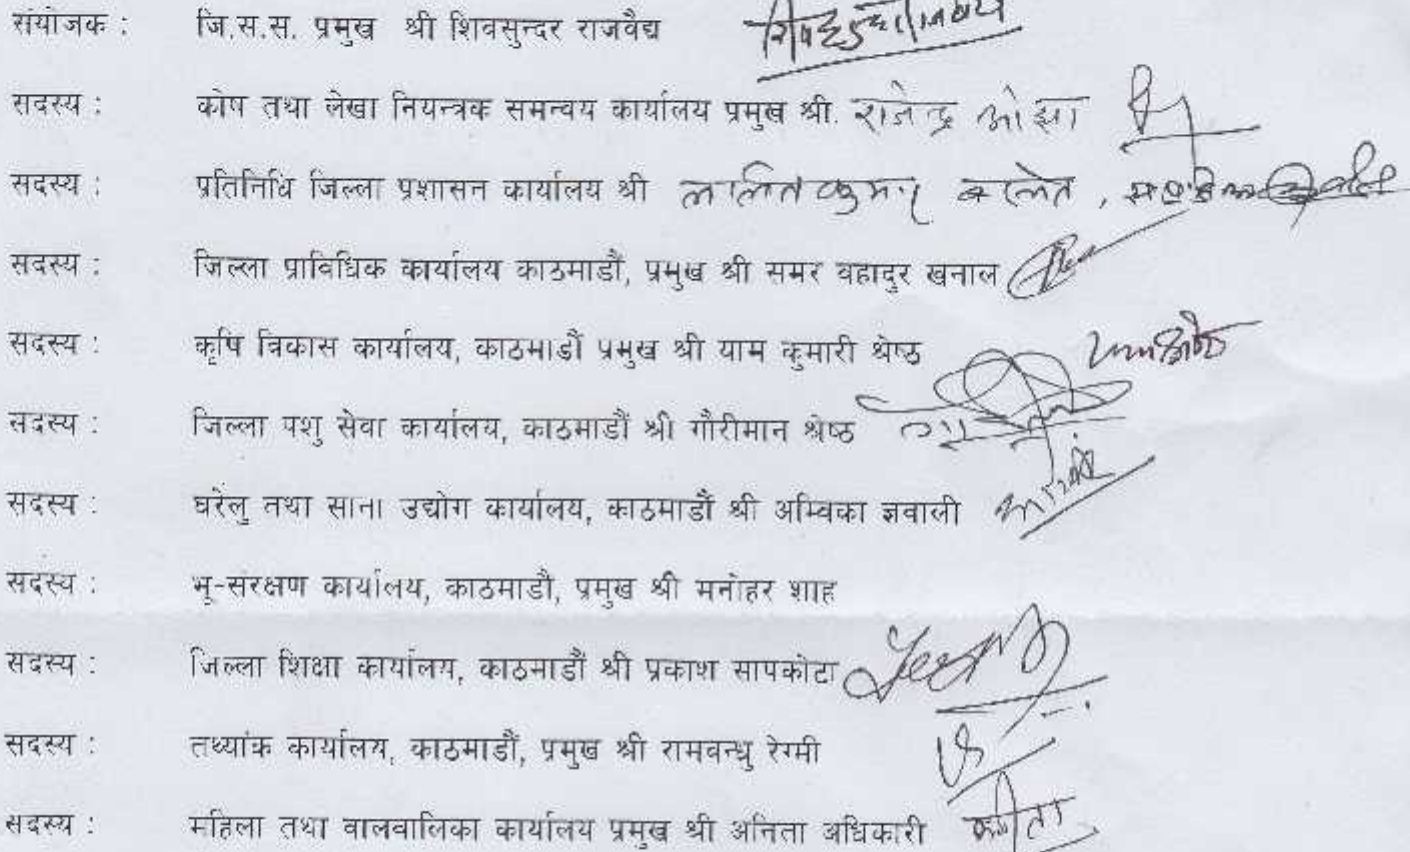 संयोजक : जि.स.स. प्रमुख श्री शिवसुन्दर राजवैद्य
सदस्य : कोष तथा लेखा नियन्त्रक समन्वय कार्यालय प्रमुख श्री. राजेन्द्र ओझा
सदस्य : प्रतिनिधि जिल्ला प्रशासन कार्यालय श्री ललित कुमार बस्नेत ,
सदस्य : जिल्ला प्राविधिक कार्यालय काठमाडौं, प्रमुख श्री समर वहादुर खनाल
सदस्य : कृषि विकास कार्यालय, काठमाडौं प्रमुख श्री याम कुमारी श्रेष्ठ
सदस्य : जिल्ला पशु सेवा कार्यालय, काठमाडौं श्री गौरीमान श्रेष्ठ
सदस्य : घरेलु तथा साना उद्योग कार्यालय, काठमाडौं श्री अम्विका ज्ञवाली
सदस्य : भू-संरक्षण कार्यालय, काठमाडौं, प्रमुख श्री मनोहर शाह
सदस्य : जिल्ला शिक्षा कार्यालय, काठमाडौं श्री प्रकाश सापकोटा
सदस्य : तथ्यांक कार्यालय, काठमाडौं, प्रमुख श्री रामवन्धु रेग्मी
सदस्य : महिला तथा वालवालिका कार्यालय प्रमुख श्री अनिता अधिकारी